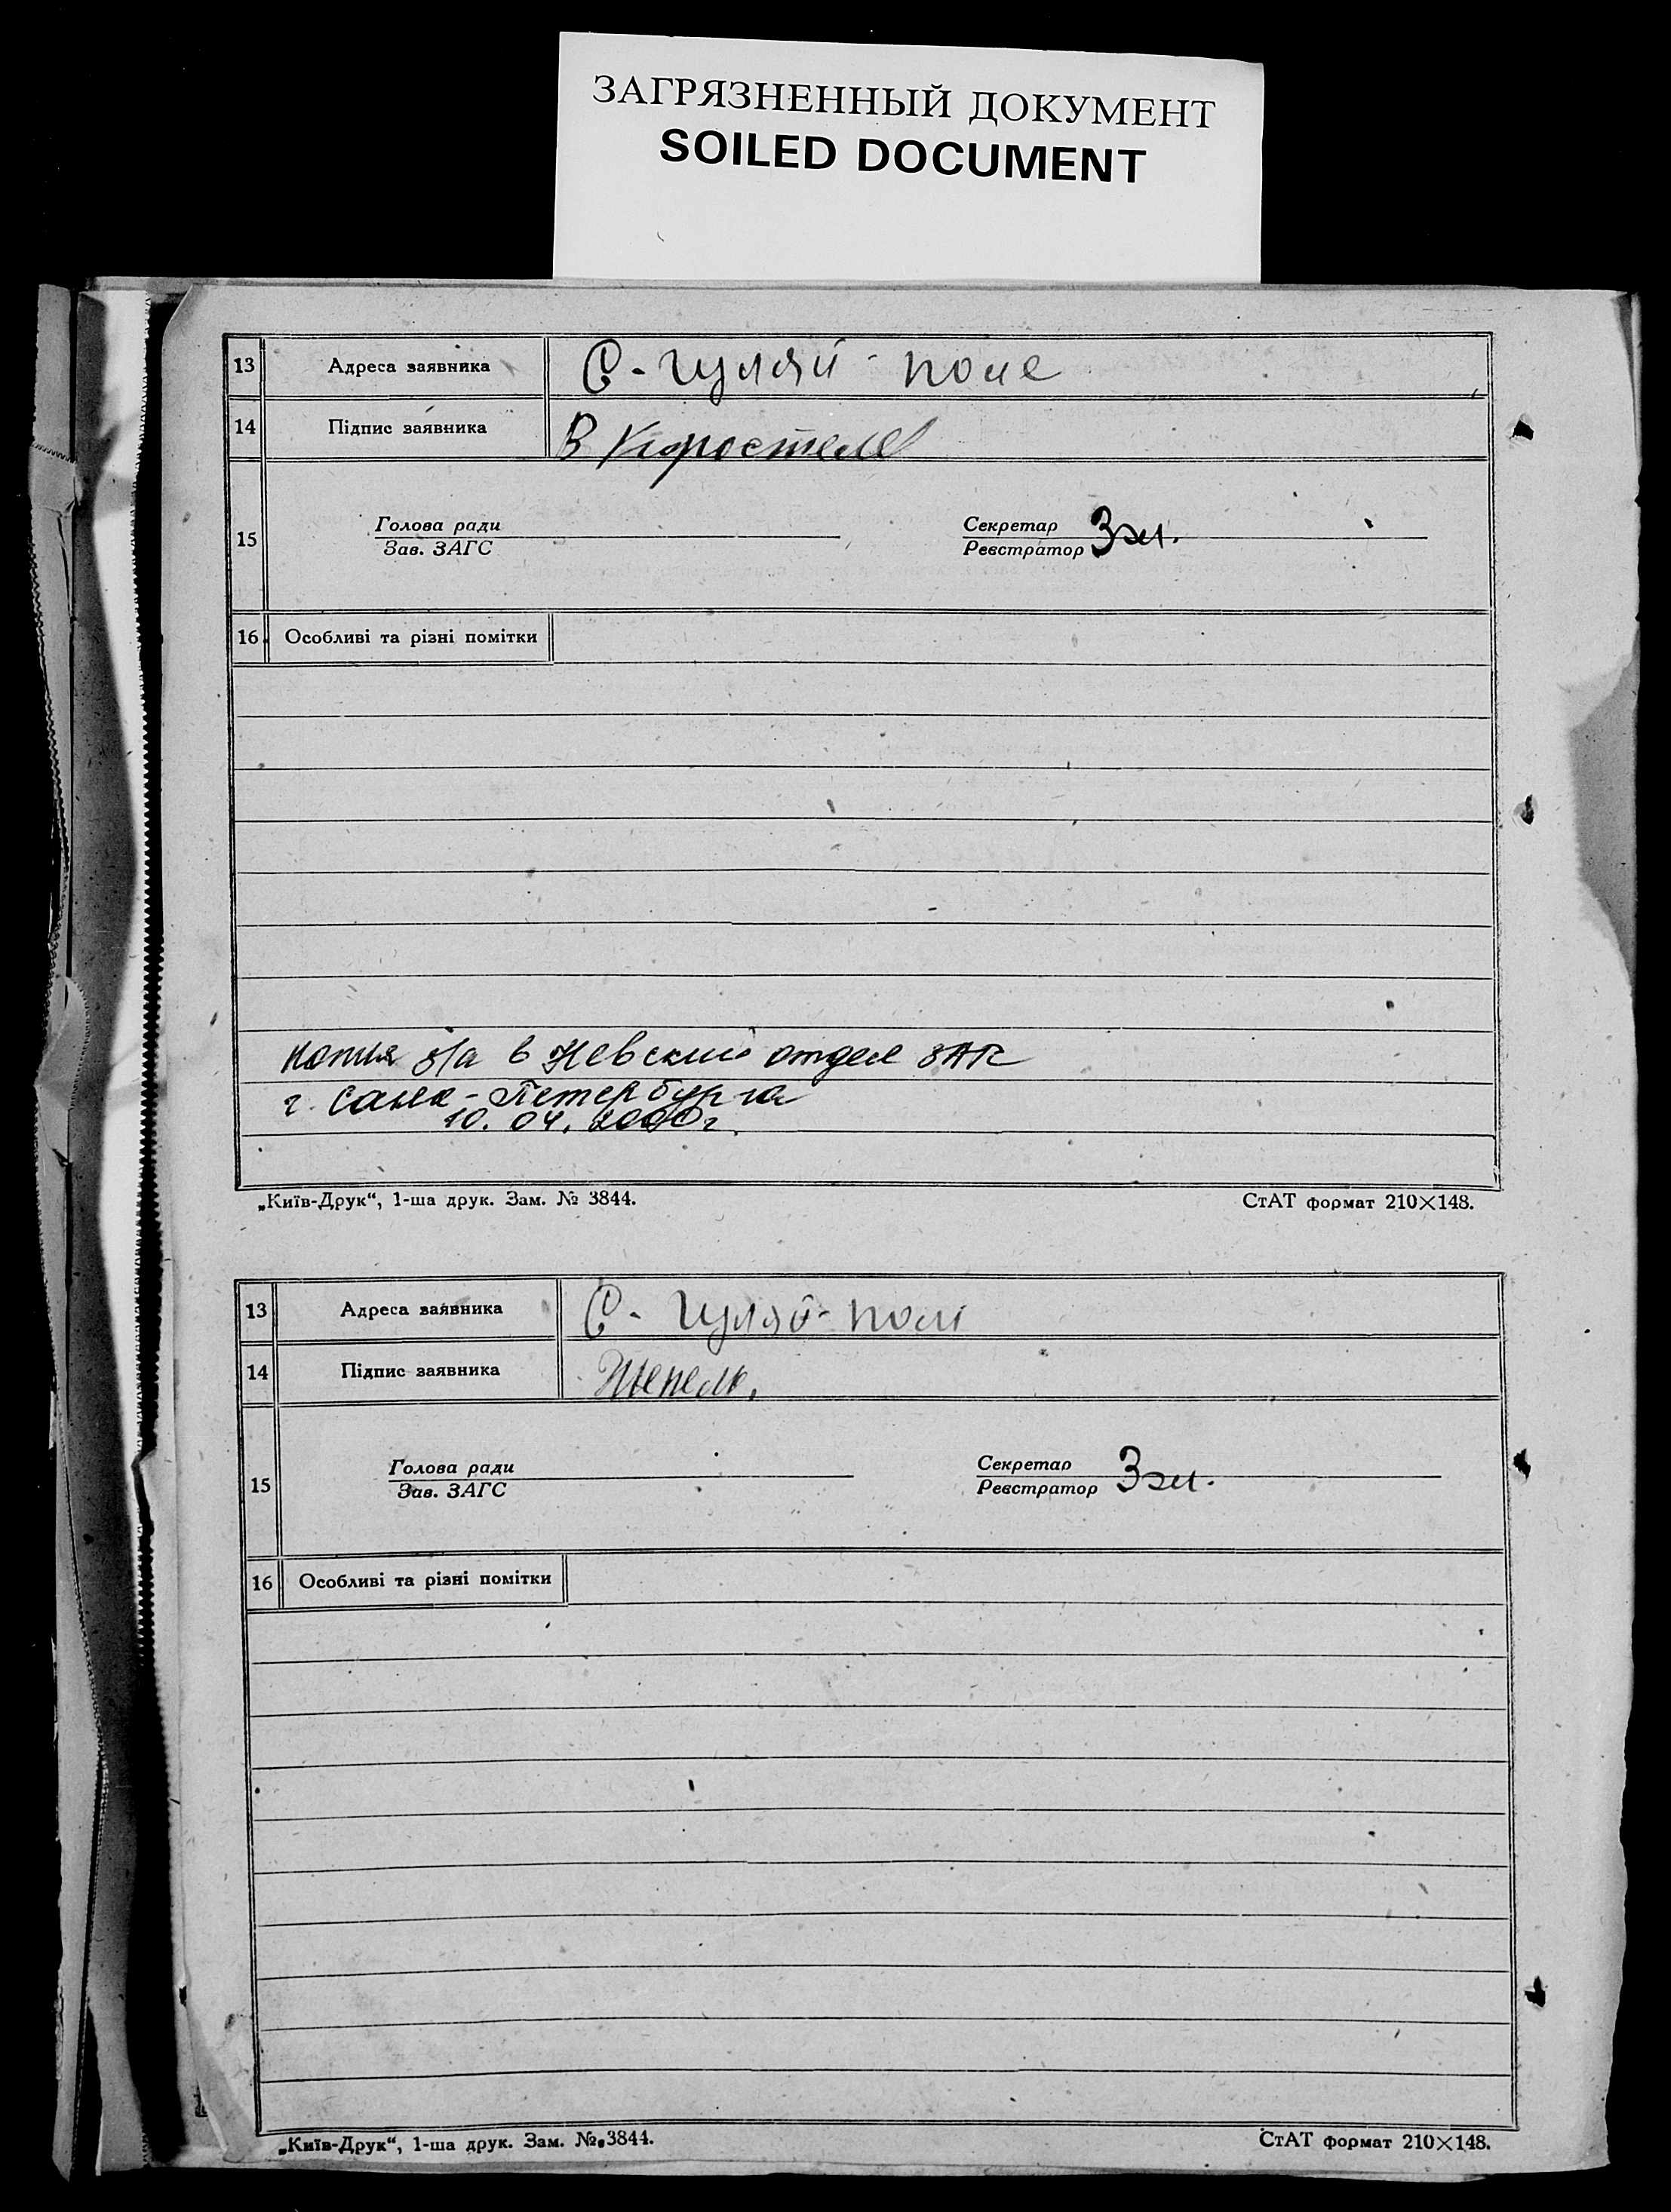 ЗАГРЯЗНЕННЫЙ ДОКУМЕНТ
SOILED DOCUMENT
13 Адреса заявника С-Гуляй-поле
14 Підпис заявника В Коростеле
15 Голова ради Секретар
Зав. ЗАГС Реєстратор
16 Особливі та різні помітки
копия з/а в Невский отдел ЗАГС
г. Санк-Петербурга
10.04.2000г.
„Київ-Друк“, 1-ша друк. Зам. № 3844. СтАТ формат 210×148.
13 Адреса заявника С-Гуляй-полі
14 Підпис заявника Шепель.
15 Голова ради Секретар
Зав. ЗАГС Реєстратор
16 Особливі та різні помітки
„Київ-Друк“, 1-ша друк. Зам. № 3844. СтАТ формат 210×148.